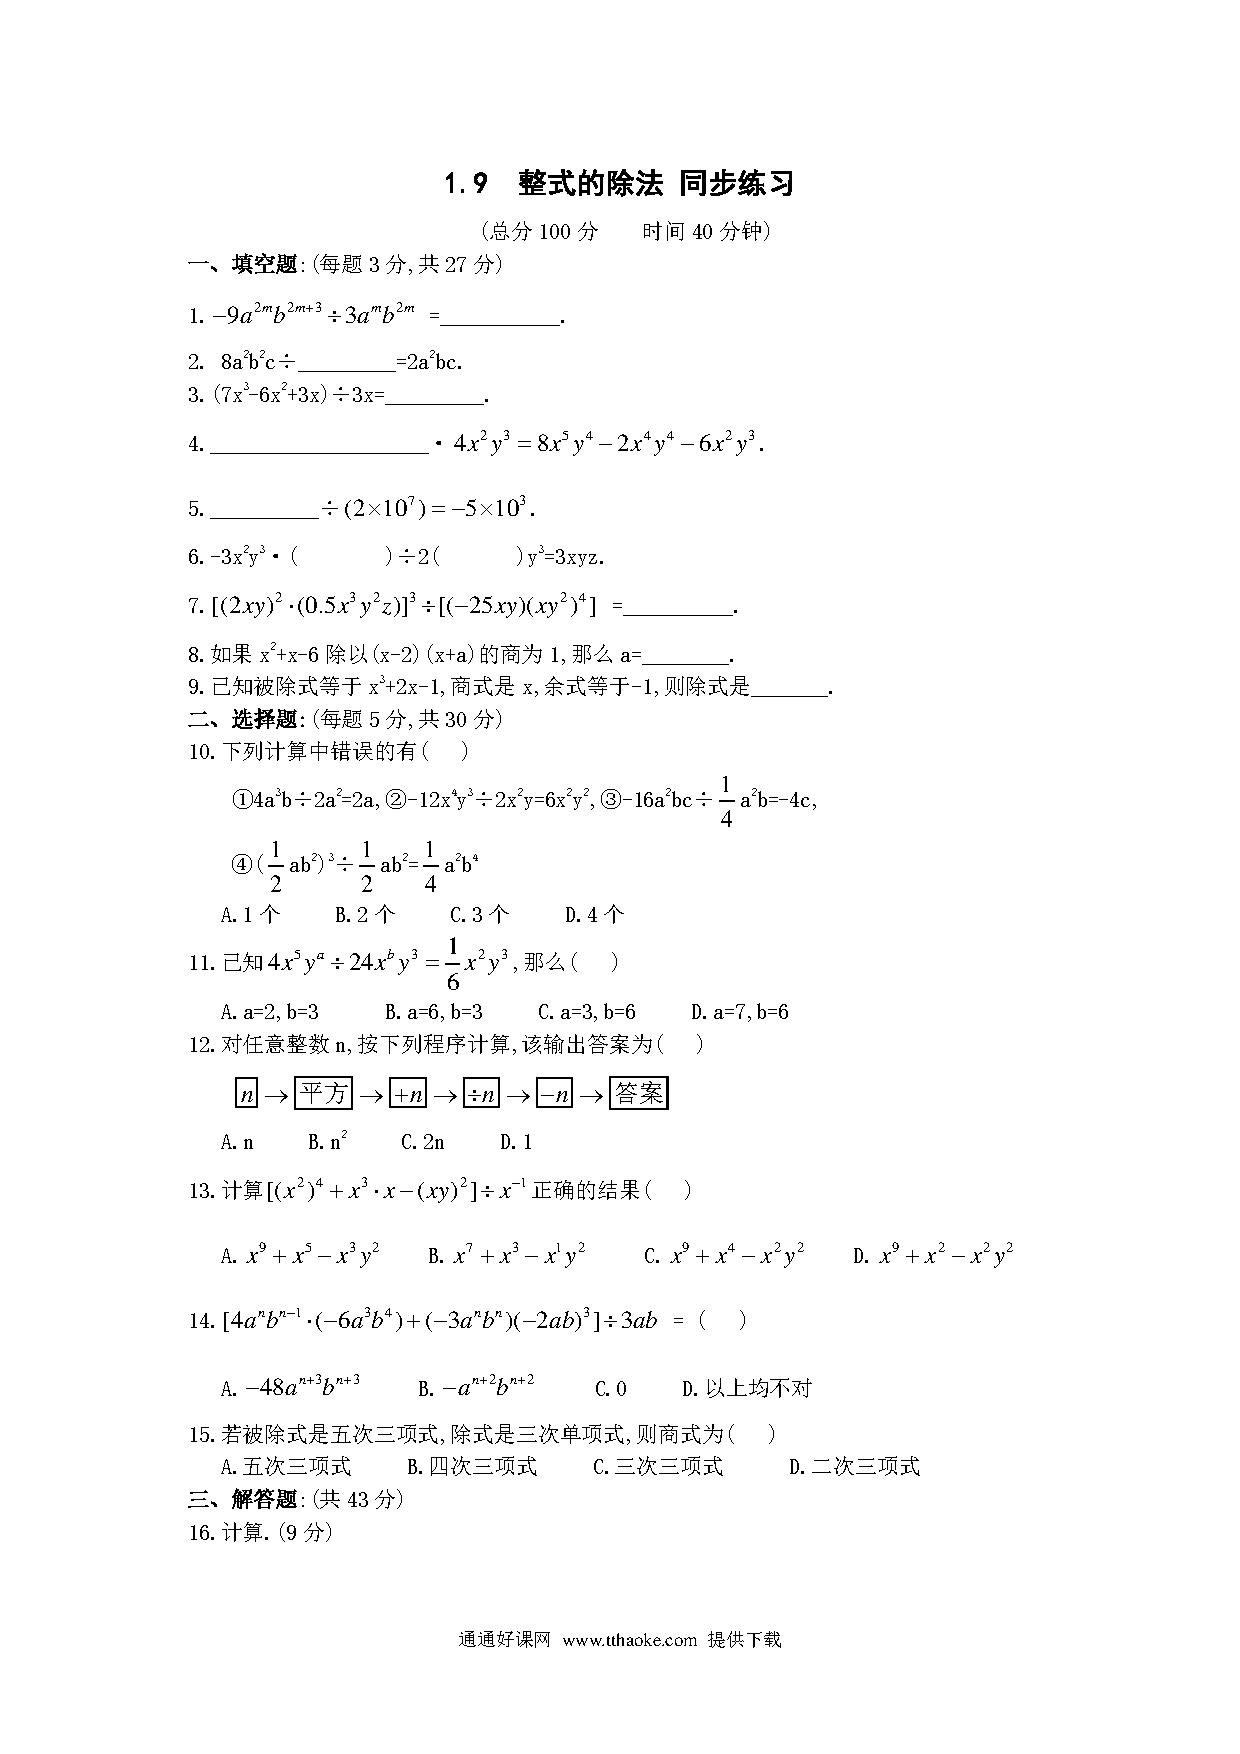 1.9 整式的除法 同步练习
(总分100分 时间40分钟)
一、填空题:(每题3分,共27分)
1. −9a^{2m}b^{2m+3}÷3a^{m}b^{2m} =___________.
2. 8a²b²c÷_________=2a²bc.
3.(7x³-6x²+3x)÷3x=_________.
4.____________________·4x²y³=8x⁵y⁴−2x⁴y⁴−6x²y³.
5.__________÷(2×10⁷)=−5×10³.
6.-3x²y³·( )÷2( )y³=3xyz.
7.[(2xy)²·(0.5x³y²z)]³÷[(−25xy)(xy²)⁴] =__________.
8.如果x²+x-6除以(x-2)(x+a)的商为1,那么a=________.
9.已知被除式等于x³+2x-1,商式是x,余式等于-1,则除式是_______.
二、选择题:(每题5分,共30分)
10.下列计算中错误的有( )
①4a³b÷2a²=2a,②-12x⁴y³÷2x²y=6x²y²,③-16a²bc÷\frac{1}{4}a²b=-4c,
④(\frac{1}{2}ab²)³÷\frac{1}{2}ab²=\frac{1}{4}a²b⁴
A.1个 B.2个 C.3个 D.4个
11.已知4x⁵y^{a}÷24x^{b}y³=\frac{1}{6}x²y³,那么( )
A.a=2,b=3 B.a=6,b=3 C.a=3,b=6 D.a=7,b=6
12.对任意整数n,按下列程序计算,该输出答案为( )
n→平方→+n→÷n→−n→答案
A.n B.n² C.2n D.1
13.计算[(x²)⁴+x³·x−(xy)²]÷x⁻¹正确的结果( )
A. x⁹+x⁵−x³y² B. x⁷+x³−x¹y² C. x⁹+x⁴−x²y² D. x⁹+x²−x²y²
14.[4a^{n}b^{n−1}·(−6a³b⁴)+(−3a^{n}b^{n})(−2ab)³]÷3ab =( )
A.−48a^{n+3}b^{n+3} B.−a^{n+2}b^{n+2} C.0 D.以上均不对
15.若被除式是五次三项式,除式是三次单项式,则商式为( )
A.五次三项式 B.四次三项式 C.三次三项式 D.二次三项式
三、解答题:(共43分)
16.计算.(9分)
通通好课网 www.tthaoke.com 提供下载